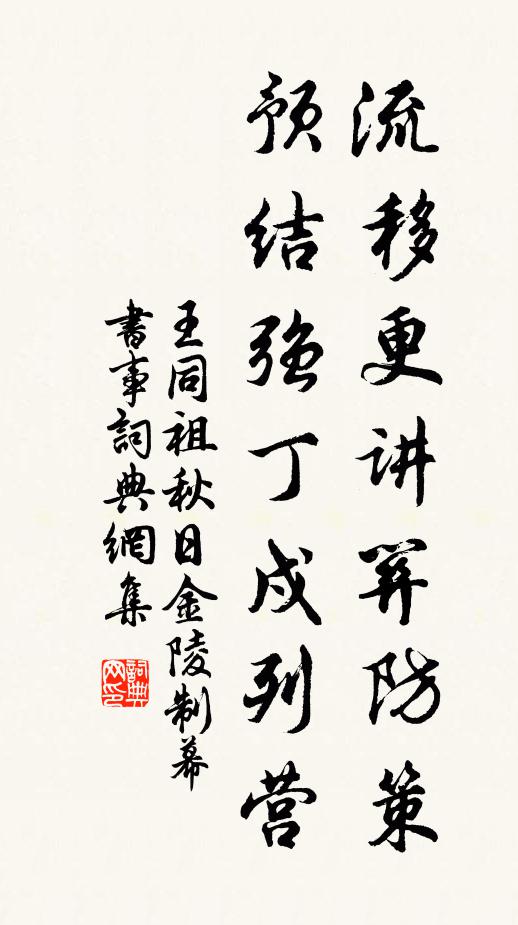 流移更讲关防策
预结强丁戍列营
王同祖秋日金陵制幕
書事詞典網集
詞典
网印